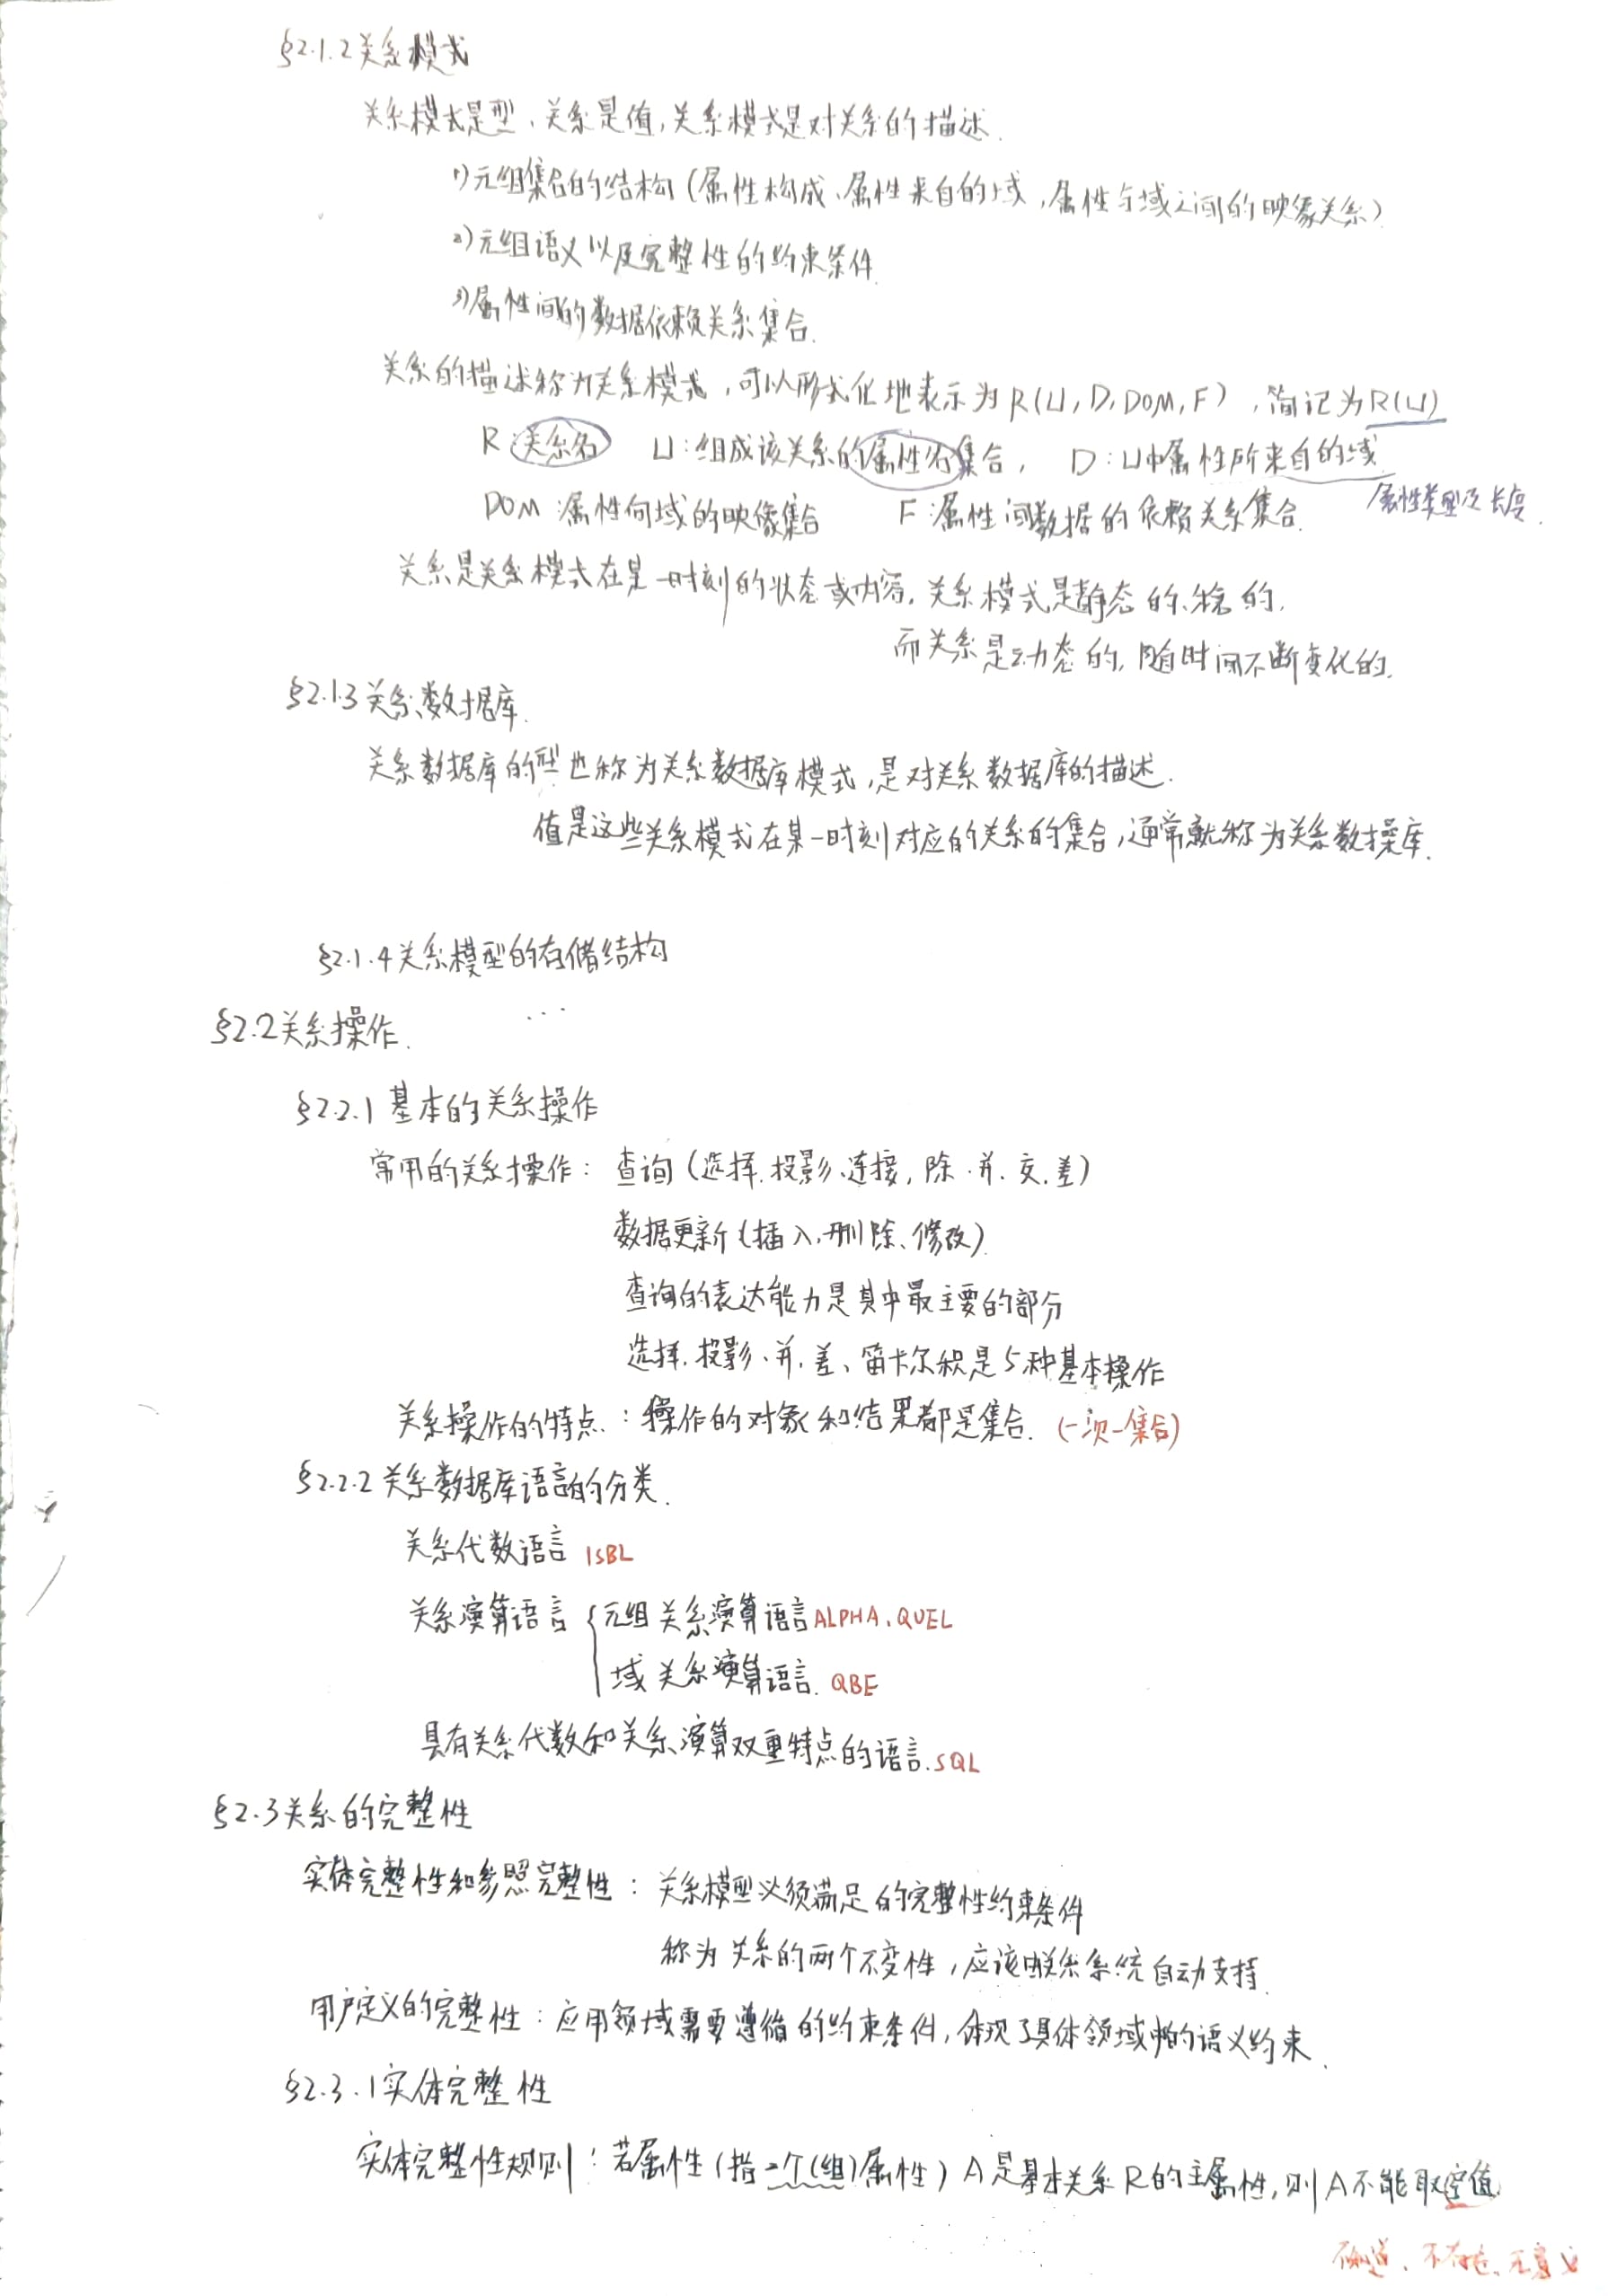 §2.1.2关系模式
关系模式是型、关系是值,关系模式是对关系的描述.
1)元组集合的结构(属性构成、属性来自的域,属性与域之间的映象关系)
2)元组语义以及完整性的约束条件.
3)属性间的数据依赖关系集合.
关系的描述称为关系模式,可以形式化地表示为R(U,D,DOM,F),简记为R(U)
R:关系名 U:组成该关系的属性名集合, D:U中属性所来自的域
属性类型及长度.
DOM:属性向域的映像集合 F:属性间数据的依赖关系集合.
关系是关系模式在某一时刻的状态或内容.关系模式是静态的、稳定的.
而关系是动态的,随时间不断变化的.
§2.1.3关系数据库.
关系数据库的型也称为关系数据库模式,是对关系数据库的描述.
值是这些关系模式在某一时刻对应的关系的集合,通常就称为关系数据库.
§2.1.4关系模型的存储结构
...
§2.2关系操作.
§2.2.1基本的关系操作
常用的关系操作:查询(选择.投影、连接,除.并.交.差)
数据更新(插入,删除、修改)
查询的表达能力是其中最主要的部分
选择.投影、并.差、笛卡尔积是5种基本操作
关系操作的特点:操作的对象和结果都是集合.(一次一集合)
§2.2.2关系数据库语言的分类.
关系代数语言 ISBL
关系演算语言{元组关系演算语言ALPHA、QUEL
域关系演算语言.QBE
具有关系代数和关系演算双重特点的语言.SQL
§2.3关系的完整性
实体完整性和参照完整性:关系模型必须满足的完整性约束条件
称为关系的两个不变性,应该由关系系统自动支持.
用户定义的完整性:应用领域需要遵循的约束条件,体现了具体领域中的语义约束.
§2.3.1实体完整性
实体完整性规则:若属性(指一个(组)属性)A是基本关系R的主属性,则A不能取空值.
不知道、不存在、无意义